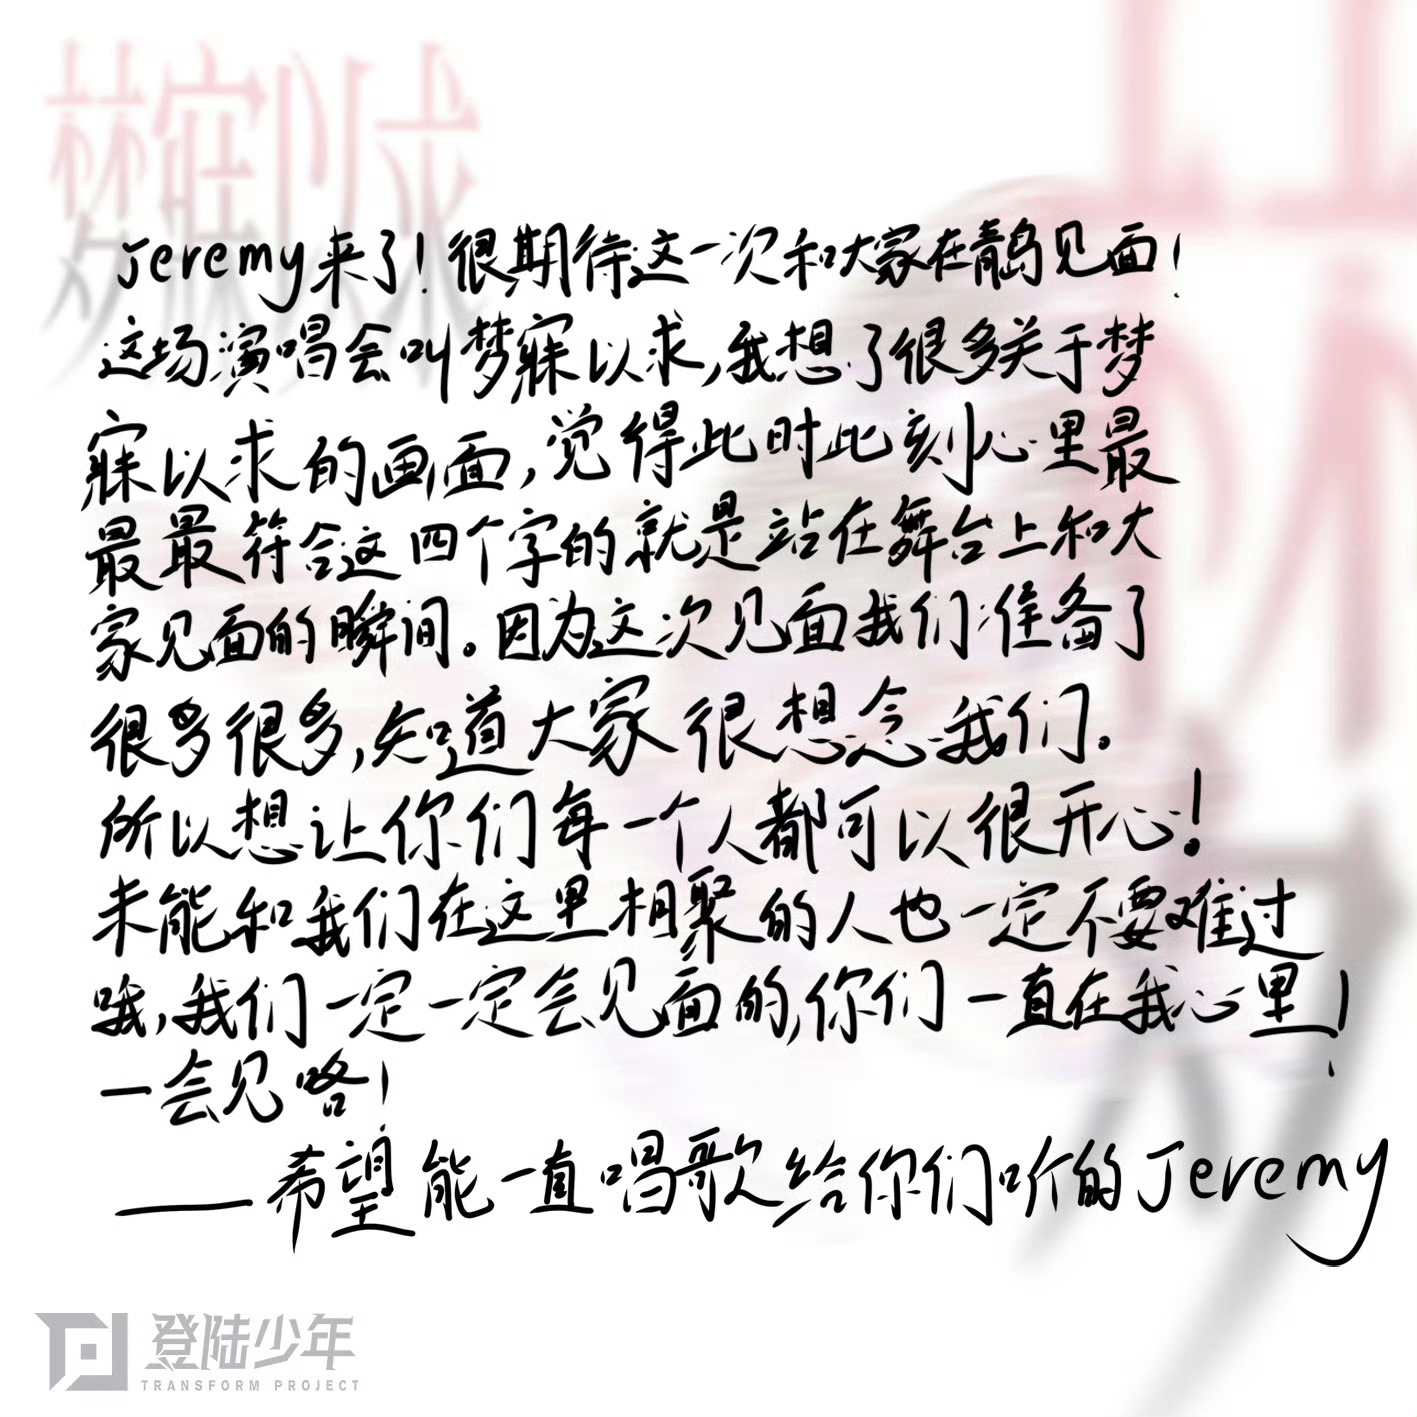 梦寐以求
Jeremy来了!很期待这一次和大家在青岛见面!
这场演唱会叫梦寐以求,我想了很多关于梦
寐以求的画面,觉得此时此刻心里最
最最符合这四个字的就是站在舞台上和大
家见面的瞬间。因为这次见面我们准备了
很多很多,知道大家很想念我们。
所以想让你们每一个人都可以很开心!
未能和我们在这里相聚的人也一定不要难过
哦,我们一定一定会见面的,你们一直在我心里!
一会见咯!
——希望能一直唱歌给你们听的Jeremy
登陆少年
TRANSFORM PROJECT